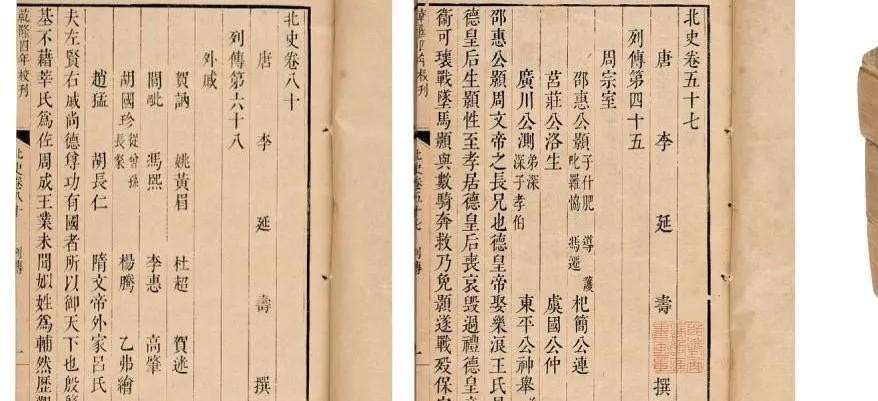 北史卷五十七
唐 李 延 壽 撰
列傳第四十五
周宗室
邵惠公顥 子什肥 導 護 叱羅協 馮遷 杞簡公連
莒莊公洛生 虞國公仲
廣川公測 弟深 深子孝伯 東平公神舉
邵惠公顥周文帝之長兄也德皇帝娶樂浪王氏是
德皇后生顥性至孝居德皇后喪哀毀過禮德皇
衛可瓌戰墜馬顥與數騎奔救乃免顥遂戰歿保
乾隆四年校刊 北史卷五十七 列傳 一
北史卷八十
唐 李 延 壽 撰
列傳第六十八
外戚
賀訥 姚黃眉 杜超 賀迷
閭毗 馮熙 李惠 高肇
胡國珍 從曾孫長粲 楊騰 乙弗繪
趙猛 胡長仁 隋文帝外家呂氏
夫左賢右戚尚德尊功有國者所以御天下也殷肇
基不藉莘氏爲佐周成王業未聞姒姓爲輔然歷觀
乾隆四年校刊 北史卷八十 列傳 一